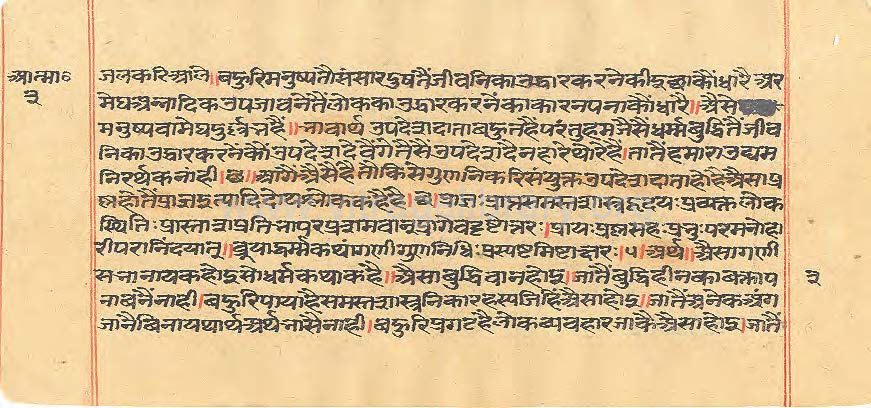 आत्मा॰
३
जलकरिआले॥बहुरिमनुष्यतौसंसारदुषतैंजीवनिकाउद्धारकरनेकीइछाकौंधारैअर
मेघअन्नादिकउपजावनेतैंलोककाउद्धारकरनेकाकारनपनाकौंधारै॥अैसे
मनुष्यवामेघदुर्ल्लभहैं॥भावार्थउपदेशदाताबहुतहैंपरंतुहमजैसेंधर्म्मबुद्धितैंजीव
निकाउद्धारकरनेंकौंउपदेशदेवैंगेतैसेंउपदेशदेनहारेथोरेहैं।तातैंहमाराउद्यम
निरर्थकनाही।छ॥आगैंअैसैंहैतोकिसगुणनिकरिसंयुक्तउपदेशदाताहोहैअैसाप्र
ष्णहोतैंप्राज्ञइत्यादिदोयश्लोककहैहै।छ॥प्राज्ञःप्राप्तसमस्तशास्त्रहृदयःप्रव्यक्तलोक
स्थितिःप्रास्ताशःप्रतिभापरःप्रशमवान्प्रागेवदृष्टोत्तरः।प्रायःप्रश्नसहःप्रभुःपरमनोहा
रीपरानिंदयाब्रूयाद्धर्म्मकथांगणीगुणनिधिःप्रस्पष्टमिष्टाक्षरः।५।अर्थ॥अैसागणी
सभानायकहोइसोधर्मकथाकहै॥अैसाबुद्धिवानहोइ।जातैंबुद्धिहीनकाबक्ताप
नाबनैंनाही।बहुरिपायाहैसमस्तशास्त्रनिकारहस्यजिहिंअैसाहोइ।जातैंअनेकअंग
जानैबिनायथार्थअर्थभासैनाही।बहुरिप्रगटहैलोकव्यवहारजाकैअैसाहोइ।जातैं
३